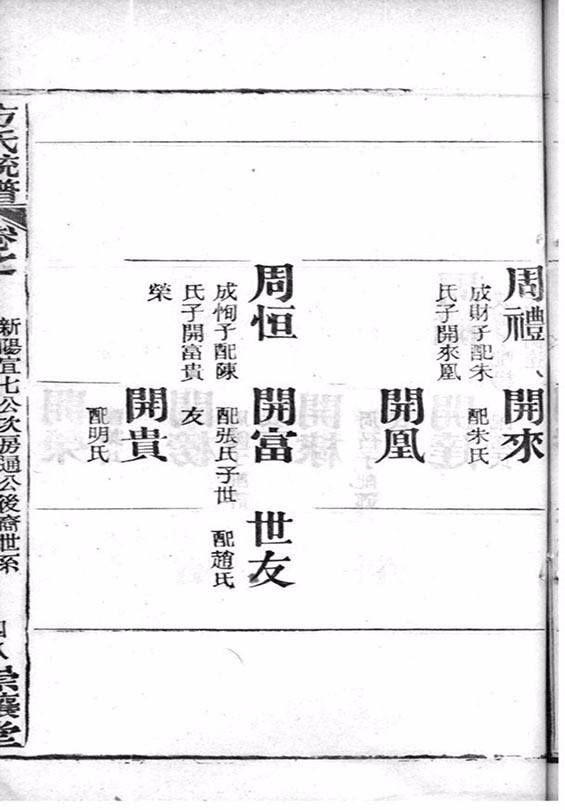 周禮
成財子配朱
氏子開來凰
開來
配朱氏
開凰
周恒
成恂子配陳
氏子開富貴
榮
開富
配張氏子世
友
世友
配趙氏
開貴
配明氏
方氏統譜
卷七
新陽宜七公次房通公後裔世系
崇讓堂